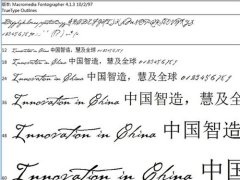 版本: Macromedia Fontographer 4.1.3 10/2/97
TrueType Outlines
12 Innovation in China 中国智造，慧及全球 0123456789
18 Innovation in China 中国智造，慧及全球 0123456789
24 Innovation in China 中国智造，慧及全球 0123456789
36 Innovation in China 中国智造，慧及全
48 Innovation in China 中国智造，
60 Innovation in China 中国